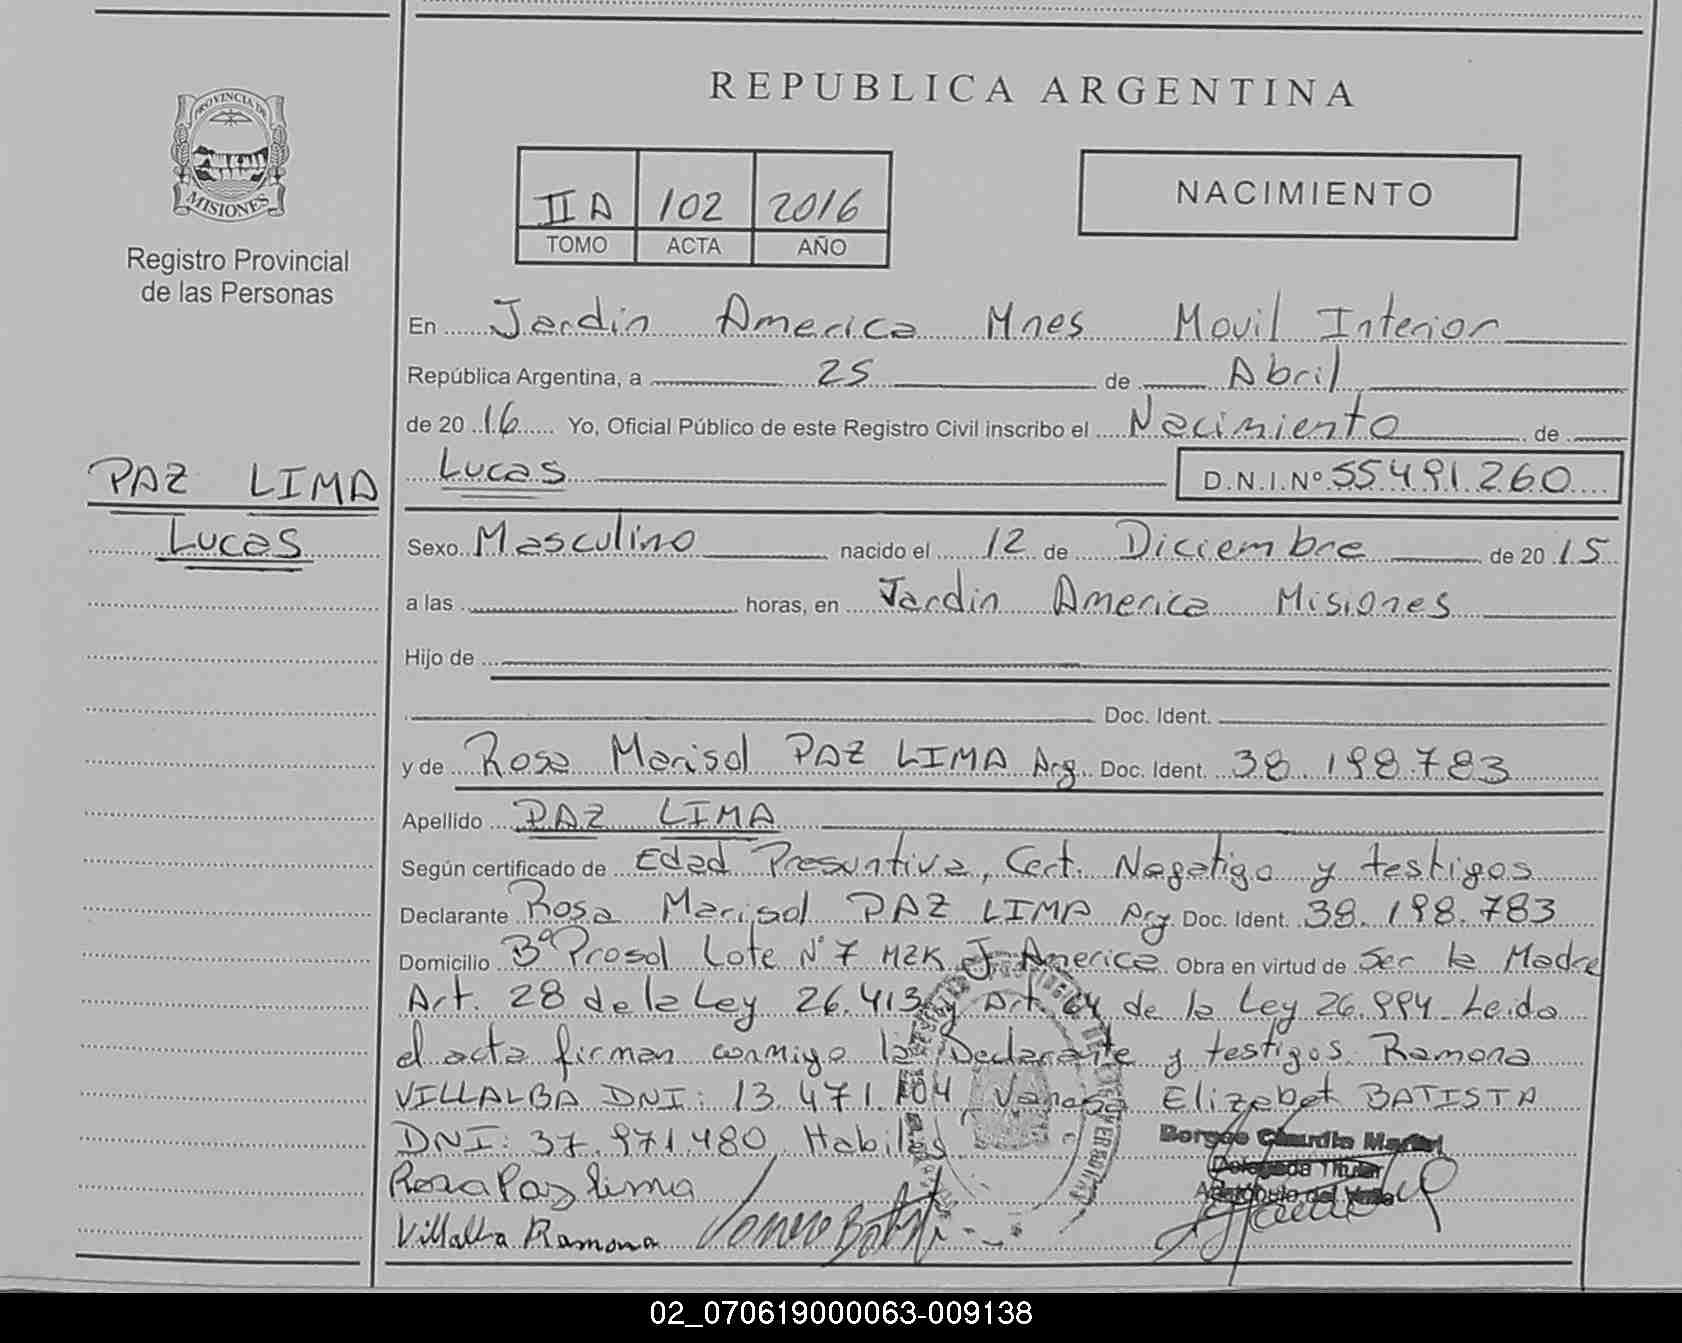 REPUBLICA ARGENTINA
PROVINCIA DE
MISIONES
Registro Provincial
de las Personas
II A 102 2016
TOMO ACTA AÑO
NACIMIENTO
En Jardin America Mnes Movil Interior
República Argentina, a 25 de Abril
de 2016 Yo, Oficial Público de este Registro Civil inscribo el Nacimiento de
PAZ LIMA
Lucas
Lucas D.N.I.Nº 55.491.260
Sexo Masculino nacido el 12 de Diciembre de 2015
a las horas, en Jardin America Misiones
Hijo de
Doc. Ident.
y de Rosa Marisol PAZ LIMA Arg. Doc. Ident. 38.198.783
Apellido PAZ LIMA
Según certificado de Edad Presuntiva, Cert. Negatigo y testigos
Declarante Rosa Marisol PAZ LIMA Arg Doc. Ident. 38.198.783
Domicilio Bº Prosol Lote Nº 7 MZK J. America Obra en virtud de Ser la Madre
Art. 28 de la Ley 26.413 y Art. 64 de la Ley 26.994. Leida
el acta firman conmigo la Declarante y testigos Ramona
VILLALBA DNI: 13.471.104 Vanesa Elizabet BATISTA
DNI: 37.971.480 Habiles
Borges Claudia Mabel
Delegada Titular
Aristóbulo del Valle
Rosa Paz lima
Villalba Ramona
02_070619000063-009138